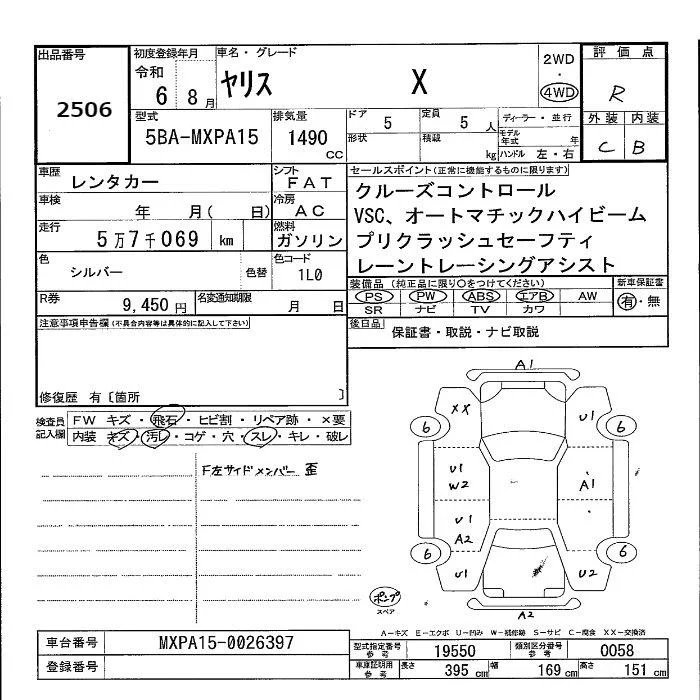 出品番号
2506
初度登録年月
令和
6 8月
車名・グレード
ヤリス X
2WD
・
4WD
評価点
R
型式
5BA-MXPA15
排気量
1490
cc
ドア
5
定員
5 人
形状
積載
kg
ディーラー・並行
モデル
年式 年
ハンドル 左・右
外装 内装
C B
車歴
レンタカー
シフト
FAT
車検
年 月( 日)
冷房
AC
走行
5万7千069 km
燃料
ガソリン
色
シルバー
色替
色コード
1L0
R券
9,450円
名変通知期限
月 日
セールスポイント(正常に機能するものに限ります)
クルーズコントロール
VSC、オートマチックハイビーム
プリクラッシュセーフティ
レーントレーシングアシスト
装備品(純正品に限り○をつけてください)
PS PW ABS エアB AW
SR ナビ TV カワ
新車保証書
有・無
後日品
保証書・取説・ナビ取説
注意事項申告欄(不具合内容等は具体的に記入して下さい)
修復歴 有〔箇所 〕
検査員
記入欄
FW キズ・飛石・ヒビ割・リペア跡・×要
内装 キズ・汚レ・コゲ・穴・スレ・キレ・破レ
F左サイドメンバー 歪
A1
XX
U1
6
6
U1
W2
A1
U1
A2
6
6
U1
U2
A2
ポンプ
スペア
A-キズ E-エクボ U-凹み W-補修跡 S-サビ C-腐食 XX-交換済
車台番号
MXPA15-0026397
登録番号
型式指定番号
参考
19550
類別区分番号
参考
0058
車庫証明用
参考
長さ
395 cm
幅
169 cm
高さ
151 cm